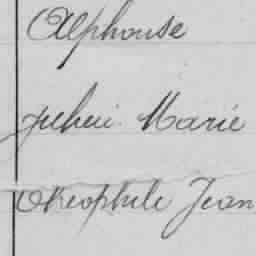 Alphonse
Julien Marie
Théophile Jean